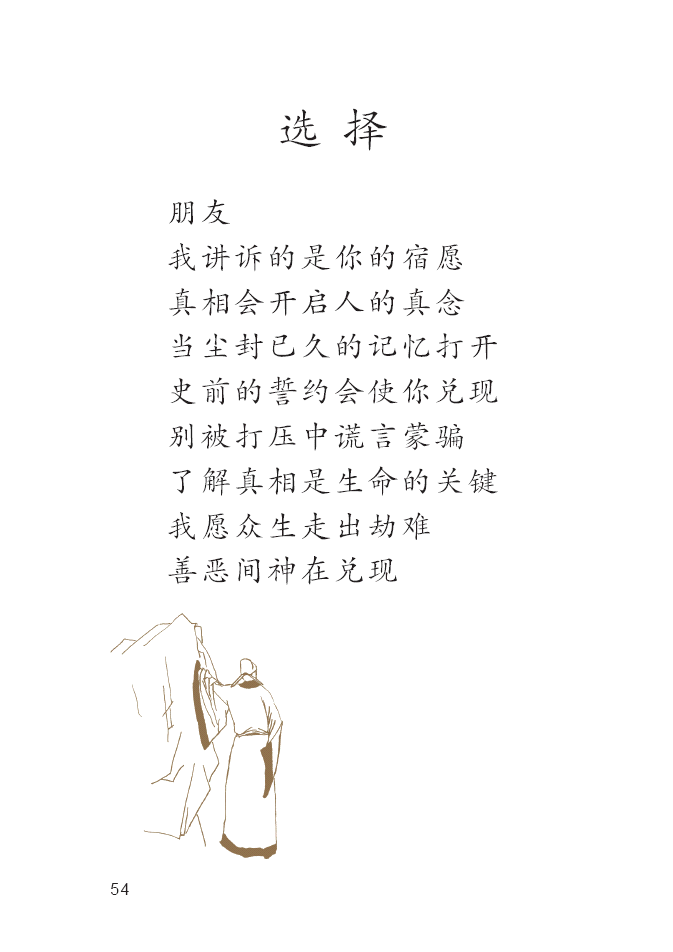 选择
朋友
我讲诉的是你的宿愿
真相会开启人的真念
当尘封已久的记忆打开
史前的誓约会使你兑现
别被打压中谎言蒙骗
了解真相是生命的关键
我愿众生走出劫难
善恶间神在兑现
54